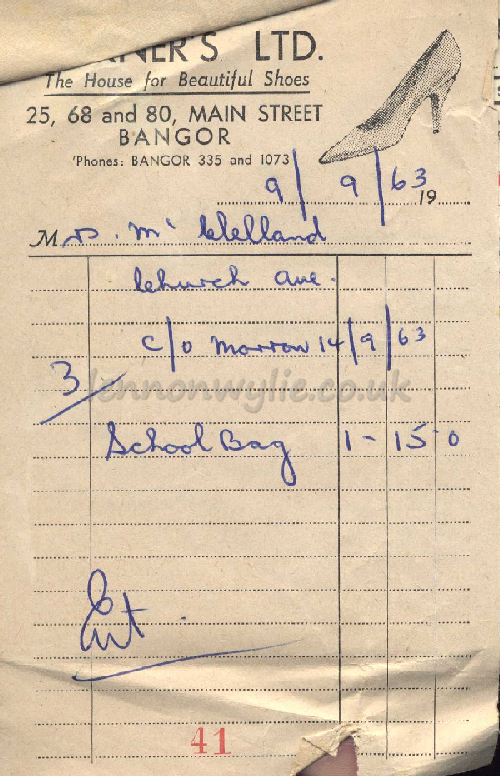 NER'S LTD.
The House for Beautiful Shoes
25, 68 and 80, MAIN STREET
BANGOR
'Phones: BANGOR 335 and 1073
9/9/63 19
Mrs. Mc Clelland
Church Ave.
c/o Morrow 14/9/63
3/
lennonwylie.co.uk
School Bag 1-15-0
41